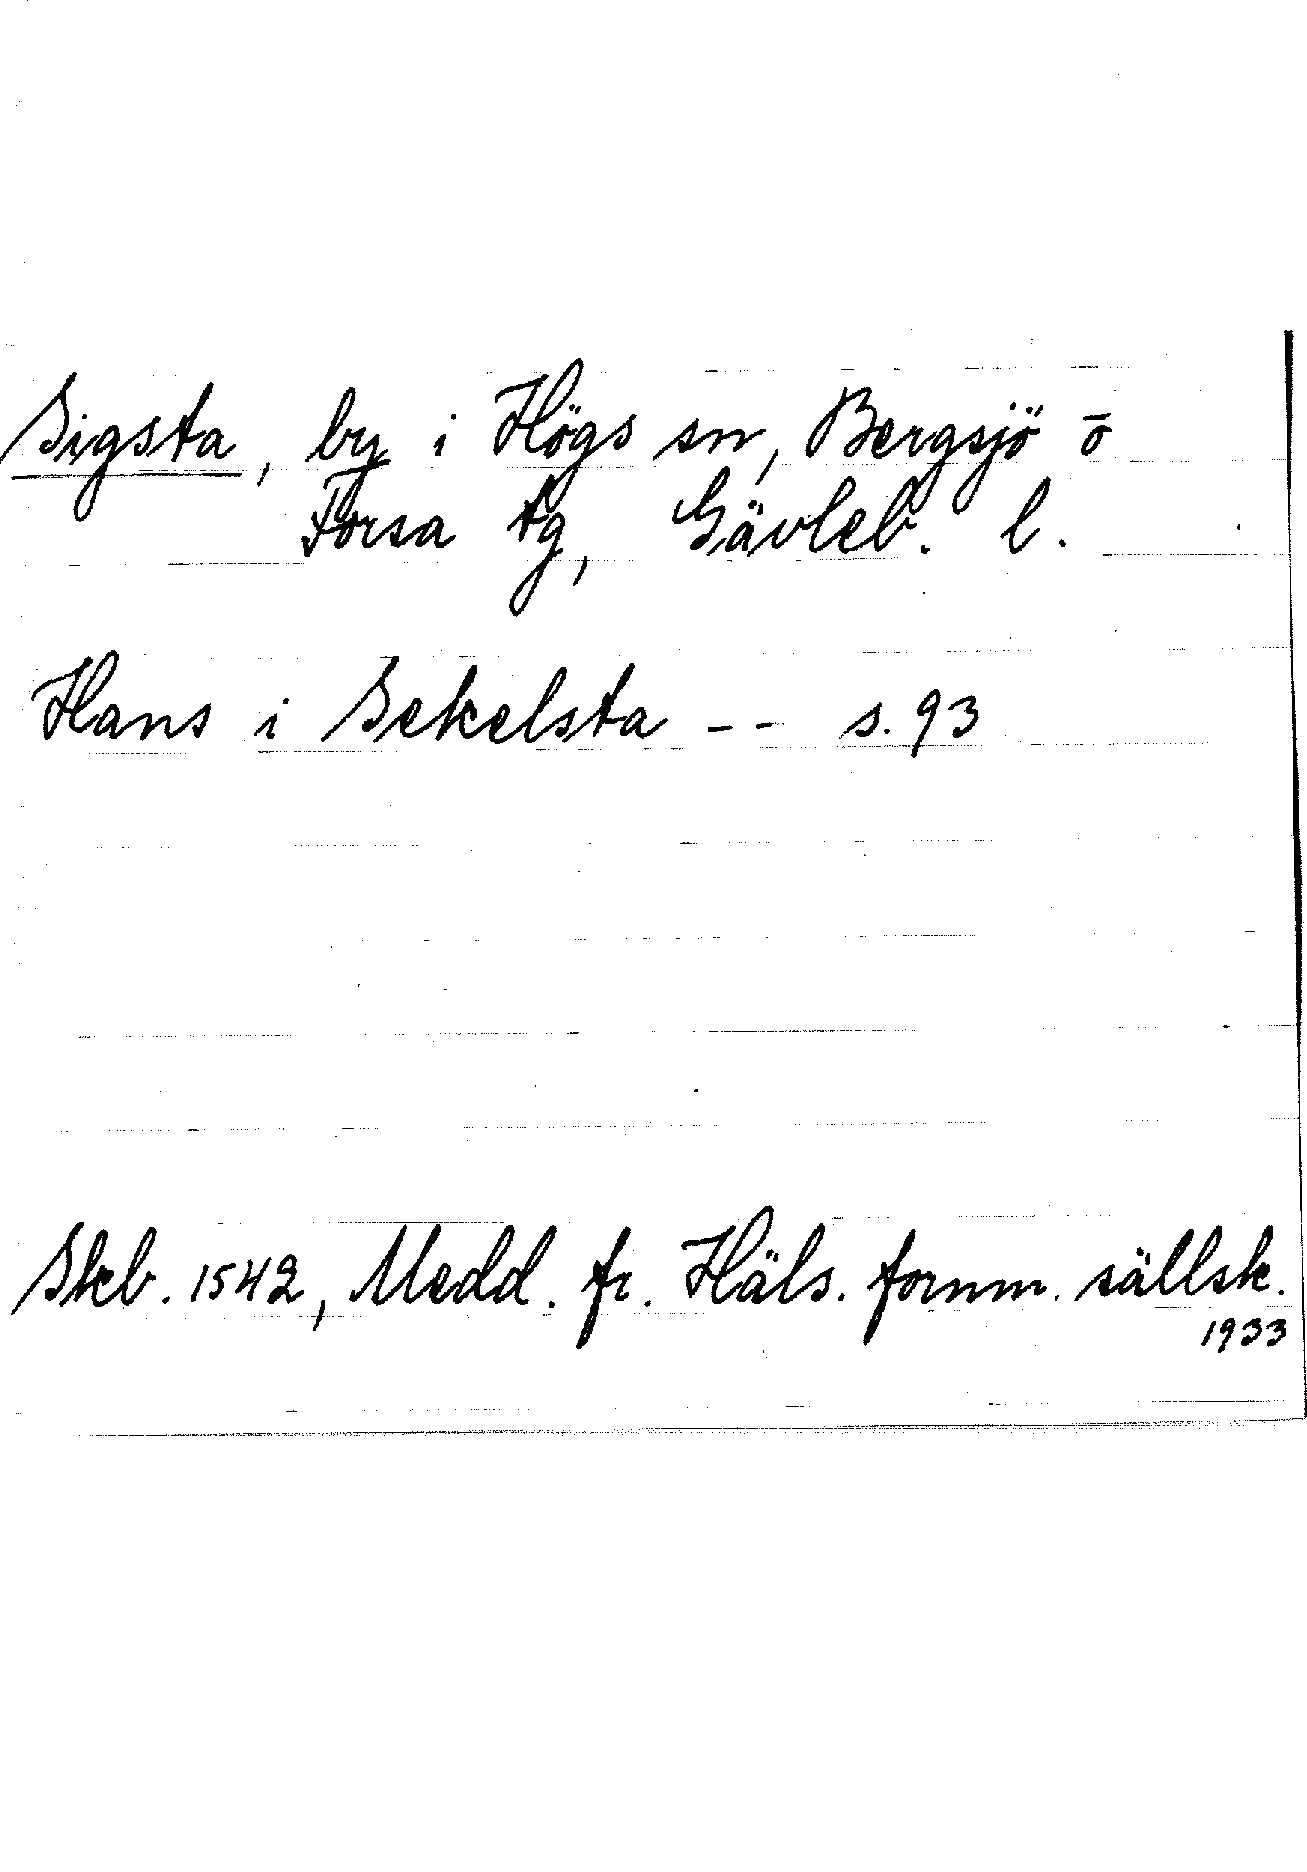 Sigsta, by i Högs sn, Bergsjö o
Forsa tg, Gävleb. l.
Hans i Sekelsta -- s. 93
Skb. 1542, Medd. fr. Häls. fornm. sällsk.
1933